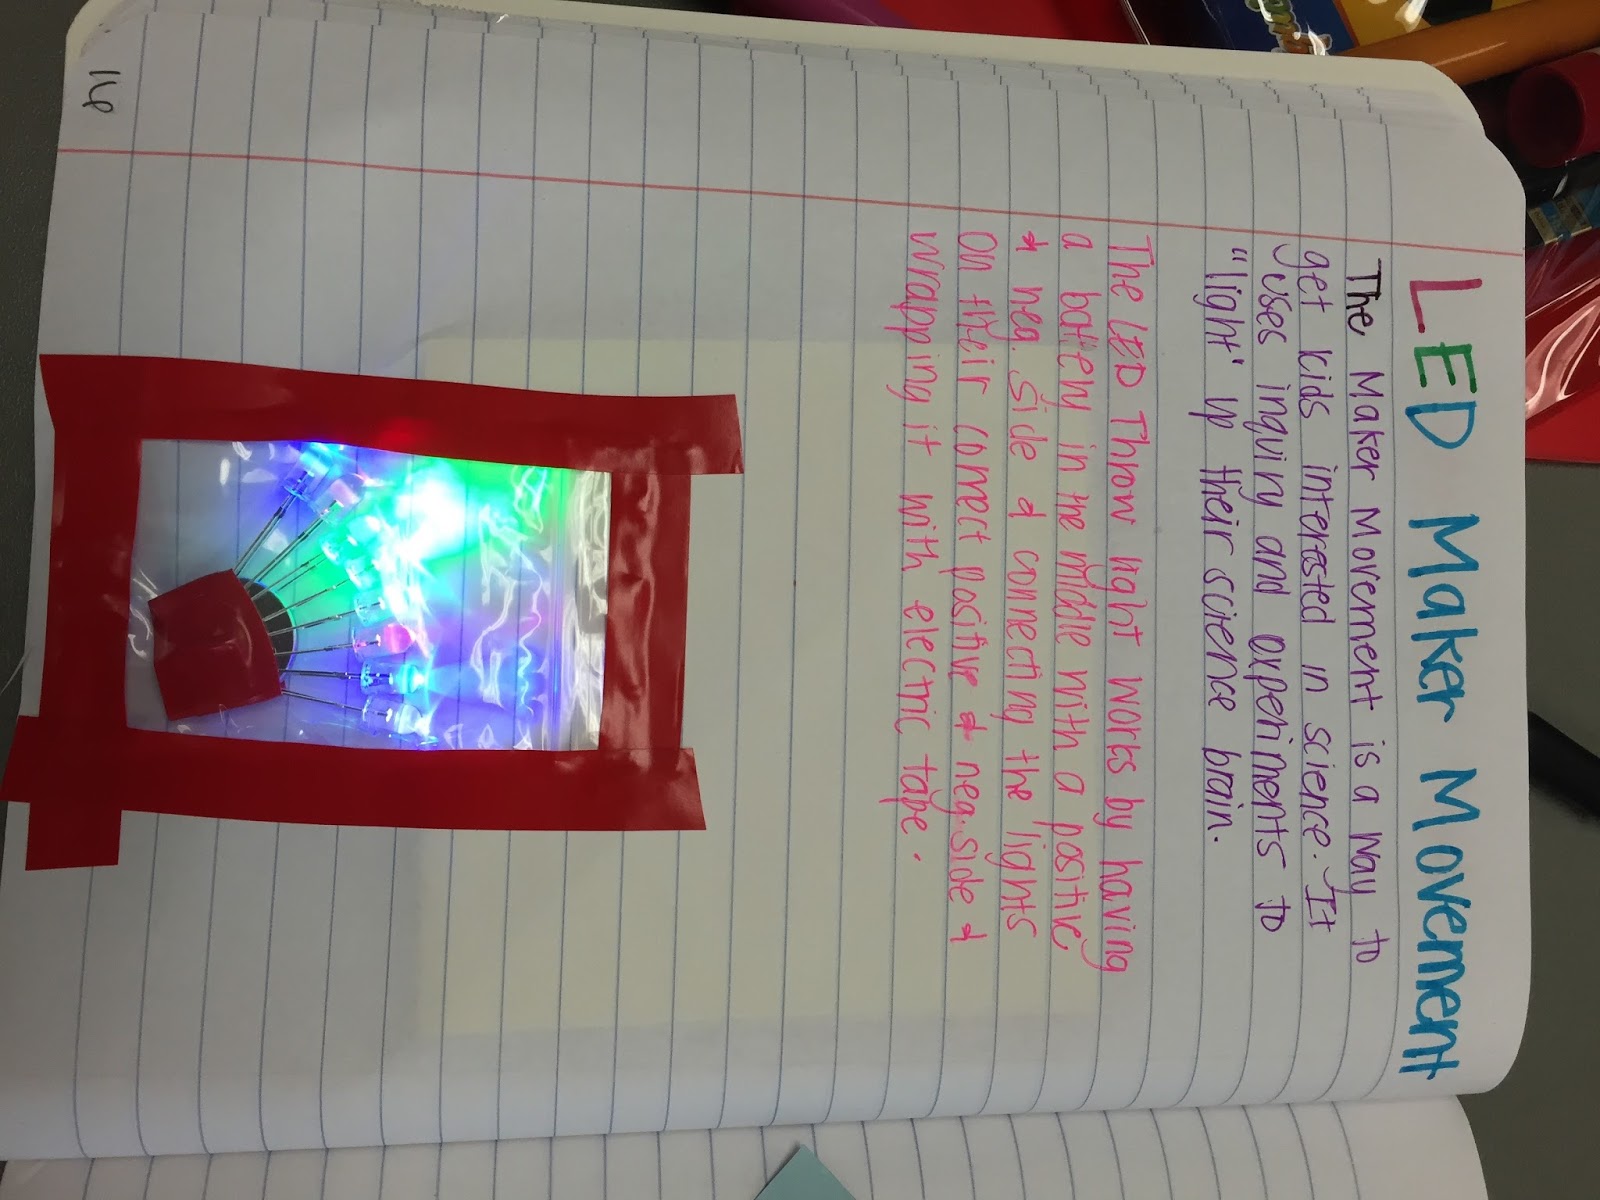 LED Maker Movement
The Maker Movement is a way to
get kids interested in science. It
uses inquiry and experiments to
"light" up their science brain.
The LED Throw light works by having
a battery in the middle with a positive
& neg. side & connecting the lights
on their correct positive & neg. side &
wrapping it with electric tape.
16